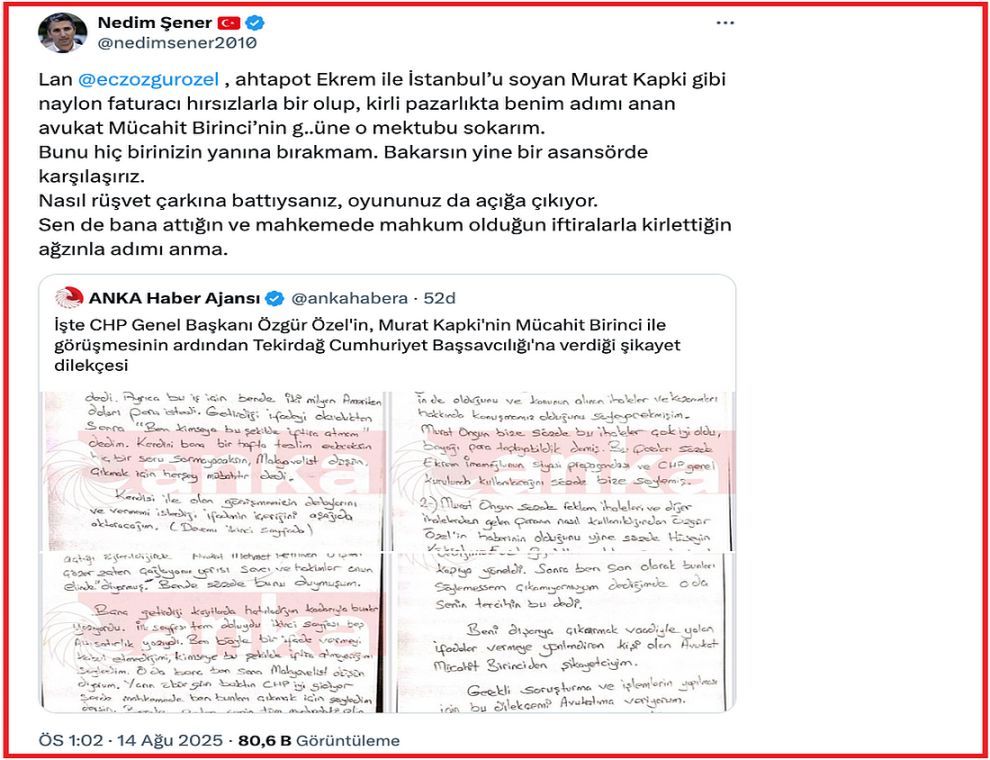 Nedim Şener
@nedimsener2010
Lan @eczozgurozel , ahtapot Ekrem ile İstanbul’u soyan Murat Kapki gibi
naylon faturacı hırsızlarla bir olup, kirli pazarlıkta benim adımı anan
avukat Mücahit Birinci’nin g..üne o mektubu sokarım.
Bunu hiç birinizin yanına bırakmam. Bakarsın yine bir asansörde
karşılaşırız.
Nasıl rüşvet çarkına battıysanız, oyununuz da açığa çıkıyor.
Sen de bana attığın ve mahkemede mahkum olduğun iftiralarla kirlettiğin
ağzınla adımı anma.
ANKA Haber Ajansı @ankahabera · 52d
İşte CHP Genel Başkanı Özgür Özel'in, Murat Kapki'nin Mücahit Birinci ile
görüşmesinin ardından Tekirdağ Cumhuriyet Başsavcılığı'na verdiği şikayet
dilekçesi
dedi. Ayrıca bu iş için benden iki milyon Amerikan
doları para istedi. Getirdiği ifadeyi okuduktan
Sonra "Ben kimseye bu şekilde iftira atmam"
dedim. Kendini bana bir hafta teslim edeceksin
hiç bir soru sormayacaksın, Makyavelist düşün,
Çıkmak için herşey mübahtır dedi.
Kendisi ile olan görüşmemizin detaylarını
ve vermemi istediği ifadenin içeriğini aşağıda
aktaracağım. (Devamı ikinci sayfada)
in de olduğunu ve konunun alınan ihaleler ve kazanmaları
hakkında konuşmamız olduğunu söyleyecekmişim.
Murat Ongun bize sözde bu ihaleler çok iyi oldu,
bayağı para toplayabildik demiş. Bu paralar sözde
Ekrem İmamoğlunun siyasi propagandası ve CHP genel
kurulunda kullanılacağını sözde bize söylemiş.
2-) Murat Ongun sözde reklam ihaleleri ve diğer
ihalelerden gelen paranın nasıl kullanıldığından Özgür
Özel'in haberinin olduğunu yine sözde Hüseyin
zaten yarısı savcı ve hakimler onun
elinde" diyormuş. Bende sözde bunu duymuşum.
Bana getirdiği kağıtlarda hatırladığım kadarıyla bunlar
yazıyordu. İlk sayfası tam doluydu ikinci sayfası beş
satırlık yazıydı. Ben böyle bir ifade vermeyi
kabul etmediğimi, kimseye bu şekilde iftira atmayacağımı
söyledim. O da bana ben sana Makyavelist düşün
diyorum. Yarın öbür gün baktın CHP iyi gidiyor
mahkemede ben bunları çıkmak için söyledim
dersin.
kapıya yöneldi. Sonra ben son olarak bunları
söylemessem çıkamıyormuyum dediğimde o da
senin tercihin bu dedi.
Beni dışarıya çıkarmak vaadiyle yalan
ifadeler vermeye yönlendiren kişi olan Avukat
Mücahit Birinciden şikayetçiyim.
Gerekli soruşturma ve işlemlerin yapılması
için bu dilekçemi Avukatıma veriyorum.
anka
ÖS 1:02 · 14 Ağu 2025 · 80,6 B Görüntüleme